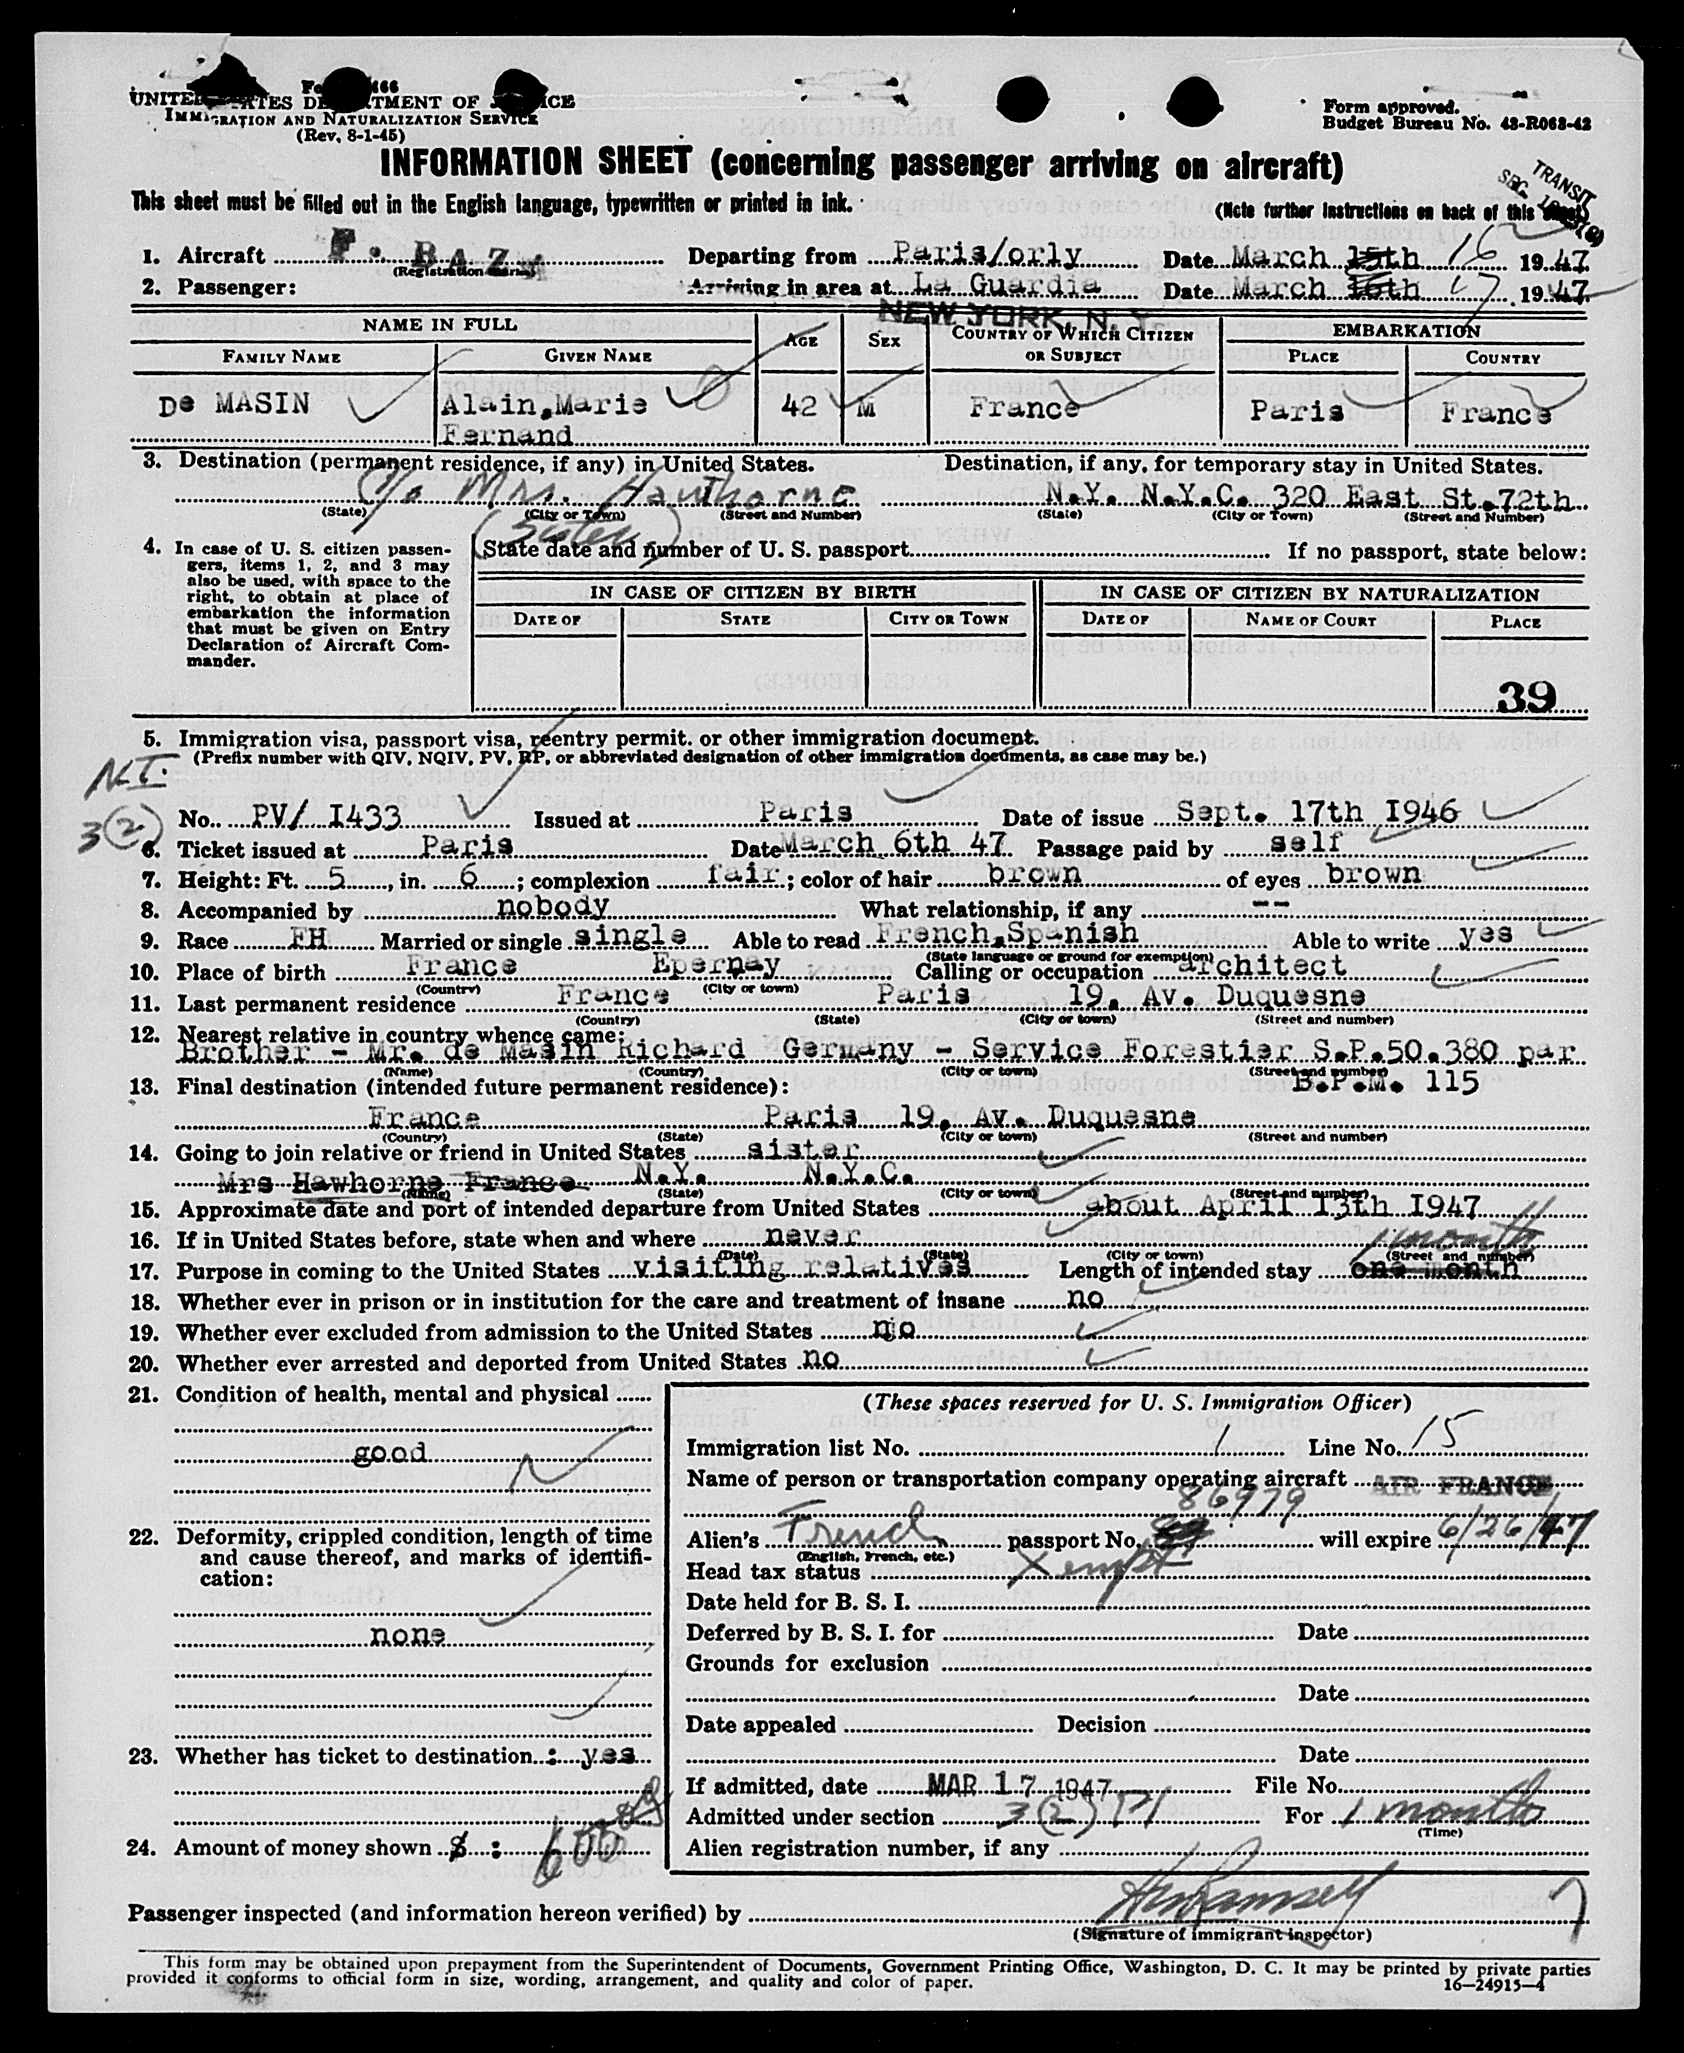 UNITED STATES DEPARTMENT OF JUSTICE
IMMIGRATION AND NATURALIZATION SERVICE
(Rev. 8-1-45)
Form approved.
Budget Bureau No. 43-R068-42
INFORMATION SHEET (concerning passenger arriving on aircraft)
TRANSIT
SEC.
This sheet must be filled out in the English language, typewritten or printed in ink.
(Note further instructions on back of this sheet)
1. Aircraft F. BAZ Departing from Paris/orly Date March 15th 16 1947
(Registration marks)
2. Passenger: Arriving in area at La Guardia Date March 16th 17 1947
NEW YORK, N. Y.
NAME IN FULL AGE SEX COUNTRY OF WHICH CITIZEN OR SUBJECT EMBARKATION
FAMILY NAME GIVEN NAME PLACE COUNTRY
De MASIN Alain,Marie 42 M France Paris France
Fernand
3. Destination (permanent residence, if any) in United States. Destination, if any, for temporary stay in United States.
c/o Mrs. Hawthorne N.Y. N.Y.C. 320 East St.72th
(State) (City or Town) (Street and Number) (State) (City or Town) (Street and Number)
(Sister)
4. In case of U. S. citizen passengers, items 1, 2, and 3 may also be used, with space to the right, to obtain at place of embarkation the information that must be given on Entry Declaration of Aircraft Commander.
State date and number of U. S. passport If no passport, state below:
IN CASE OF CITIZEN BY BIRTH IN CASE OF CITIZEN BY NATURALIZATION
DATE OF STATE CITY OR TOWN DATE OF NAME OF COURT PLACE
39
5. Immigration visa, passport visa, reentry permit, or other immigration document.
(Prefix number with QIV, NQIV, PV, RP, or abbreviated designation of other immigration documents, as case may be.)
N.I.
3(2)
No. PV/ I433 Issued at Paris Date of issue Sept. 17th I946
6. Ticket issued at Paris Date March 6th 47 Passage paid by self
7. Height: Ft. 5, in. 6; complexion fair; color of hair brown of eyes brown
8. Accompanied by nobody What relationship, if any --
9. Race FH Married or single single Able to read French,Spanish Able to write yes
(State language or ground for exemption)
10. Place of birth France Epernay Calling or occupation architect
(Country) (City or town)
11. Last permanent residence France Paris 19, Av. Duquesne
(Country) (State) (City or town) (Street and number)
12. Nearest relative in country whence came:
Brother - Mr. de Masin Richard Germany - Service Forestier S.P.50.380 par
(Name) (Country) (City or town) (Street and number)
B.P.M. 115
13. Final destination (intended future permanent residence):
France Paris 19, Av. Duquesne
(Country) (State) (City or town) (Street and number)
14. Going to join relative or friend in United States sister
Mrs Hawhorne France N.Y. N.Y.C.
(Name) (State) (City or town) (Street and number)
15. Approximate date and port of intended departure from United States about April 13th I947
16. If in United States before, state when and where never
(Date) (State) (City or town) (Street and number)
1 month
17. Purpose in coming to the United States visiting relatives Length of intended stay one month
18. Whether ever in prison or in institution for the care and treatment of insane no
19. Whether ever excluded from admission to the United States no
20. Whether ever arrested and deported from United States no
21. Condition of health, mental and physical
good
22. Deformity, crippled condition, length of time and cause thereof, and marks of identification:
none
23. Whether has ticket to destination : yes
24. Amount of money shown $ : 600
(These spaces reserved for U. S. Immigration Officer)
Immigration list No. 1 Line No. 15
Name of person or transportation company operating aircraft AIR FRANCE
86979
Alien's French passport No. will expire 6/26/47
(English, French, etc.)
Head tax status Xempt
Date held for B. S. I.
Deferred by B. S. I. for Date
Grounds for exclusion
Date
Date appealed Decision
Date
If admitted, date MAR 17 1947 File No.
Admitted under section 3(2) P1 For 1 month
(Time)
Alien registration number, if any
Passenger inspected (and information hereon verified) by
(Signature of immigrant inspector)
This form may be obtained upon prepayment from the Superintendent of Documents, Government Printing Office, Washington, D. C. It may be printed by private parties
provided it conforms to official form in size, wording, arrangement, and quality and color of paper. 16—24915-4